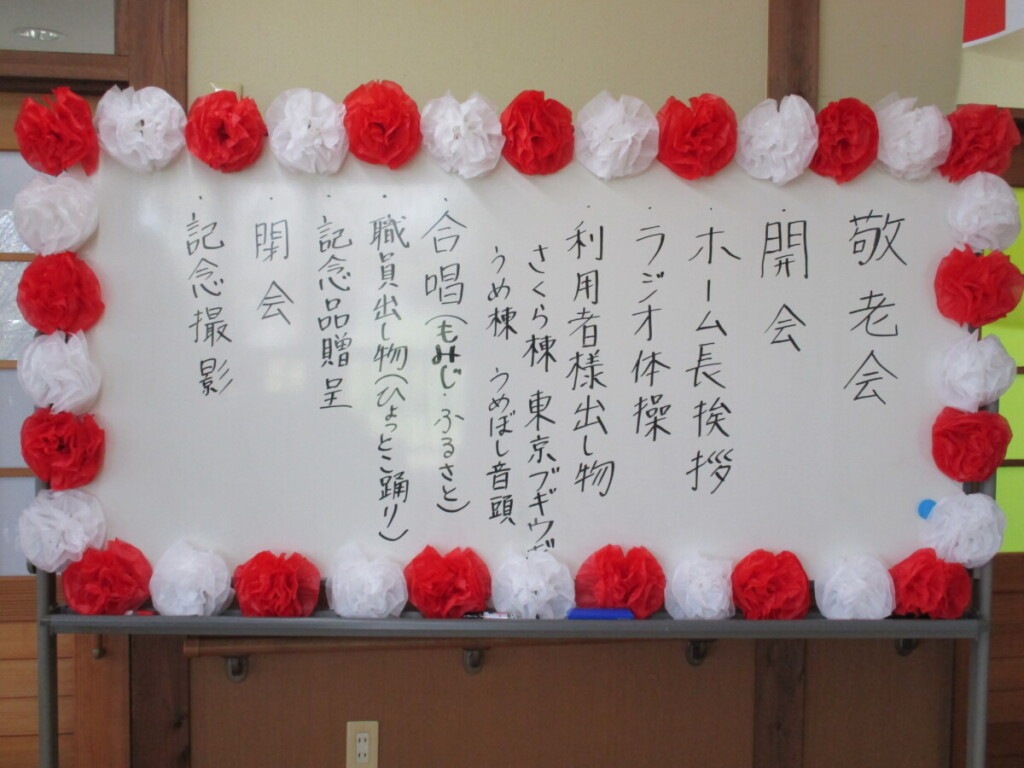 敬老会
・開会
・ホーム長挨拶
・ラジオ体操
・利用者様出し物
さくら棟 東京ブギウギ
うめ棟 うめぼし音頭
・合唱(もみじ・ふるさと)
・職員出し物(ひょっとこ踊り)
・記念品贈呈
・閉会
・記念撮影